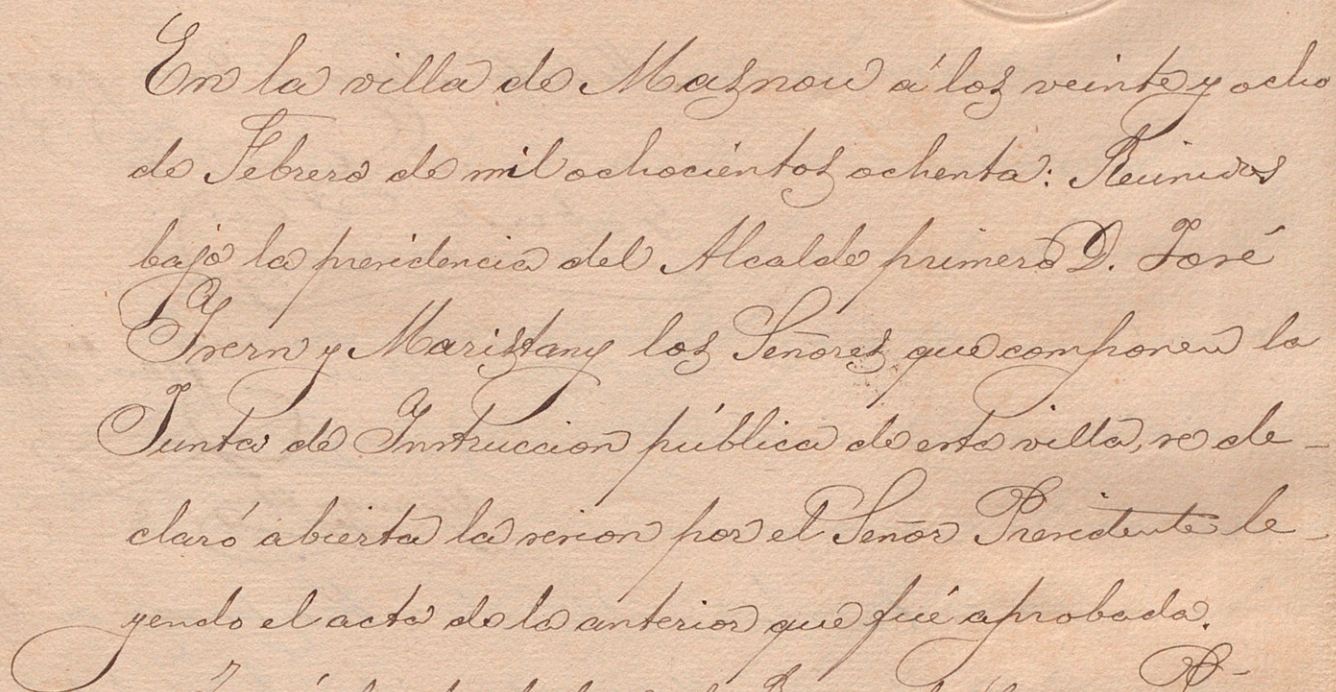 En la villa de Masnou á los veinte y ocho
de Febrero de mil ochocientos ochenta: Reunidos
bajo la presidencia del Alcalde primero D. José
Ysern y Maristany los Señores que componen la
Junta de Instruccion pública de esta villa, se de-
claró abierta la sesion por el Señor Presidente le-
yendo el acta de la anterior que fué aprobada.